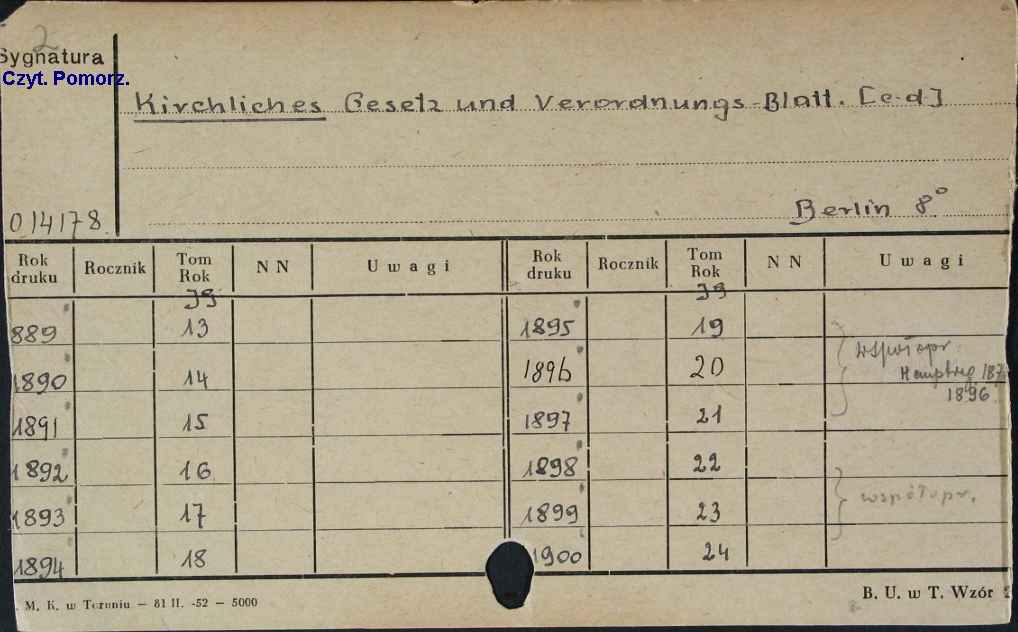 2
Sygnatura
Czyt. Pomorz.
Kirchliches Gesetz und Verordnungs-Blatt. [c.d]
014178.
Berlin 8°
Rok druku Rocznik Tom Rok NN Uwagi Rok druku Rocznik Tom Rok NN Uwagi
Jg Jg
889 13 1895 19
1890 14 1896 20 współopr.
Hauptreg 187
1896.
1891 15 1897 21
1892 16 1898 22
1893 17 1899 23 współopr.
1894 18 1900 24
M. K. w Toruniu — 81 II. -52 — 5000
B. U. w T. Wzór